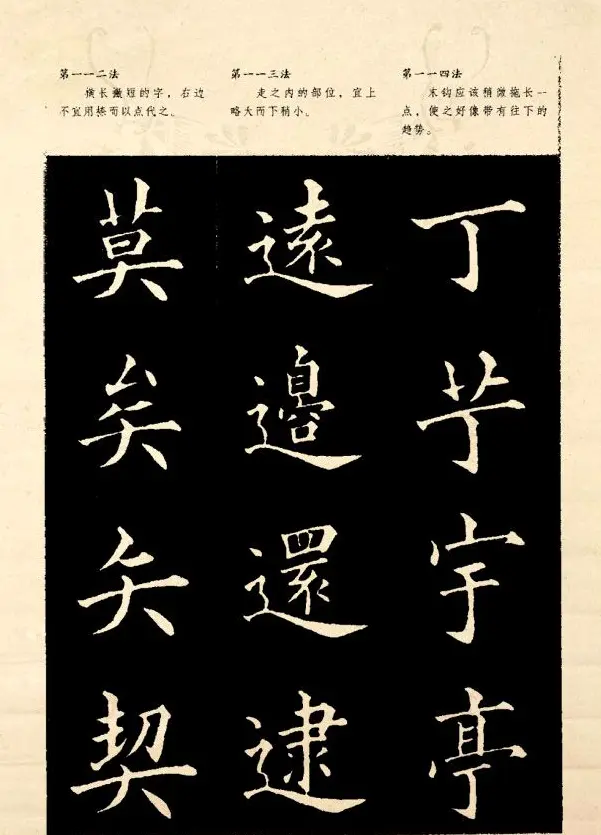 第一一二法
横长撇短的字，右边
不宜用捺而以点代之。
第一一三法
走之内的部位，宜上
略大而下稍小。
第一一四法
末钩应该稍微拖长一
点，使之好像带有往下的
趋势。
莫
矣
矢
契
遠
邊
還
逮
丁
芋
宇
亭